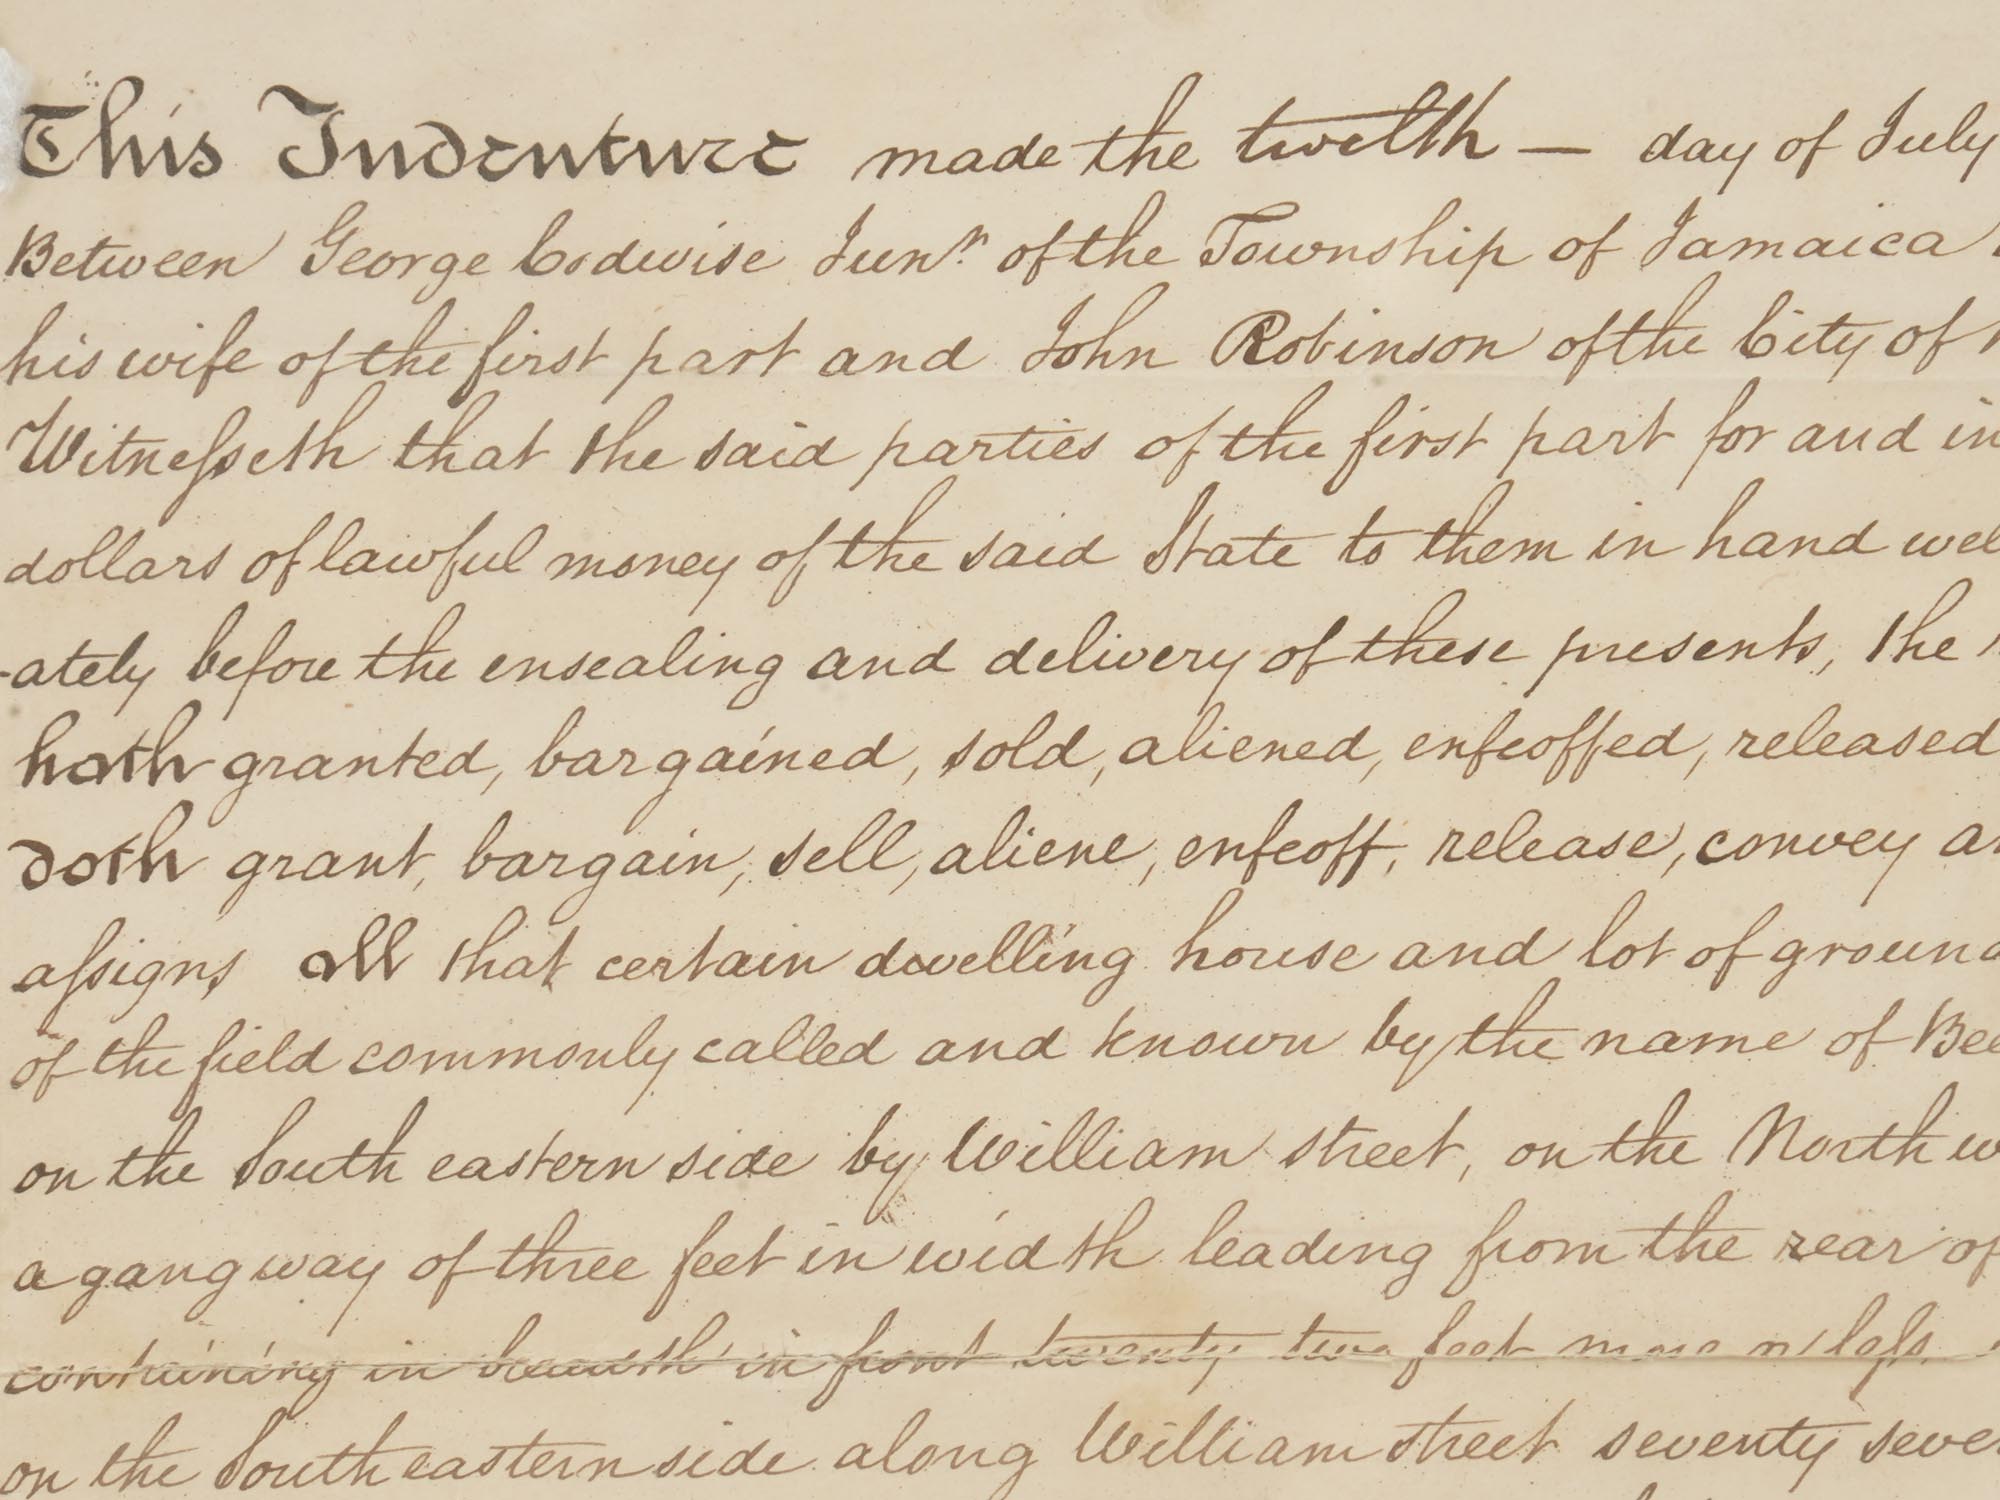 This Indenture made the twelth — day of July
Between George Codwise Junr. of the Township of Jamaica
his wife of the first part and John Robinson of the City of
Witnesseth that the said parties of the first part for and in
dollars of lawful money of the said State to them in hand wel
-ately before the ensealing and delivery of these presents, the
hath granted, bargained, sold, aliened, enfeoffed, released
doth grant, bargain, sell, aliene, enfeoff, release, convey an
assigns all that certain dwelling house and lot of ground
of the field commonly called and known by the name of Bee
on the South eastern side by William street, on the North w
a gang way of three feet in width leading from the rear of
containing in breadth in front twenty two feet more or less
on the South eastern side along William street seventy seve